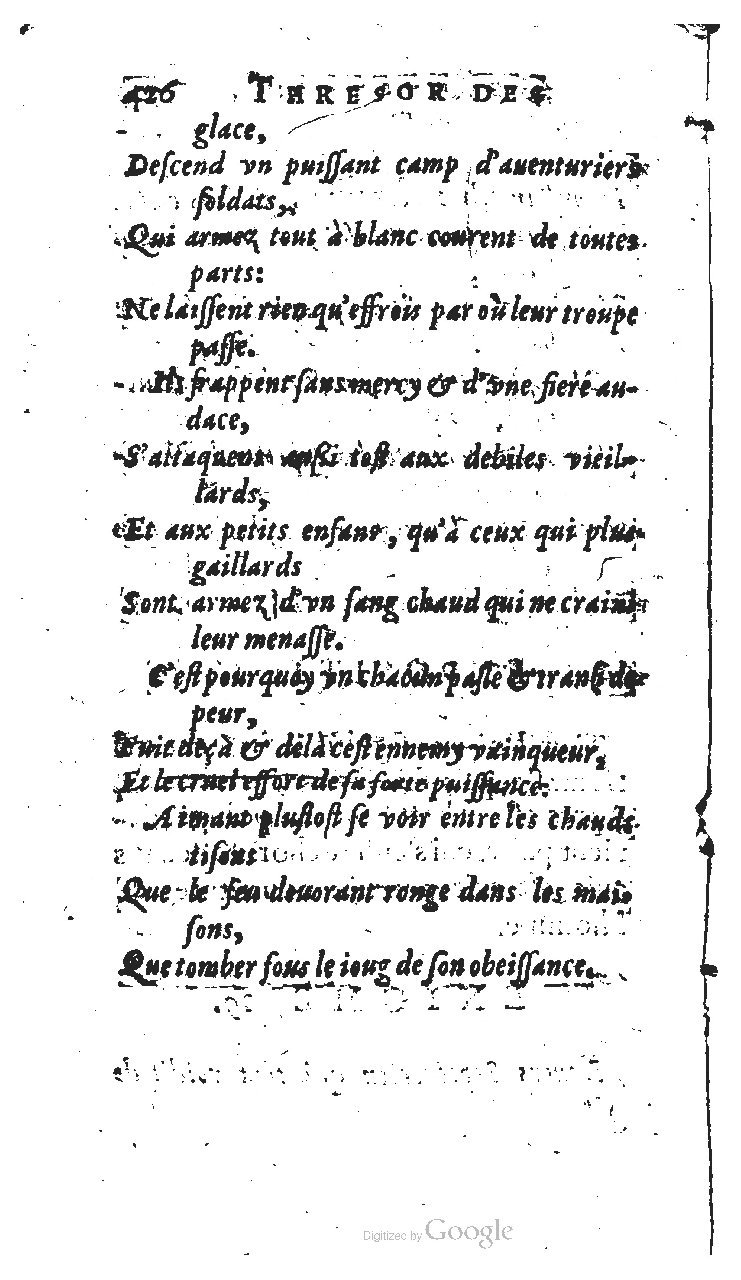 426 THRESOR DES
glace,
Deſcend vn puiſſant camp d'auenturiers
ſoldats,
Qui armez tout à blanc courent de toutes
parts:
Ne laiſſent rien qu'effrois par où leur troupe
paſſe.
Ils frappent ſans mercy & d'vne fiere au-
dace,
S'attaquent auſſi toſt aux debiles vieil-
lards,
Et aux petits enfans, qu'à ceux qui plus
gaillards
Sont armez d'vn ſang chaud qui ne craint
leur menaſſe.
C'eſt pourquoy vn chacun paſle & tranſi de
peur,
Fuit deçà & delà ceſt ennemy vainqueur,
Et le cruel effort de ſa forte puiſſance:
Aimant pluſtoſt ſe voir entre les chauds
tiſons
Que le feu deuorant ronge dans les mai-
ſons,
Que tomber ſous le ioug de ſon obeiſſance.
Digitized by Google